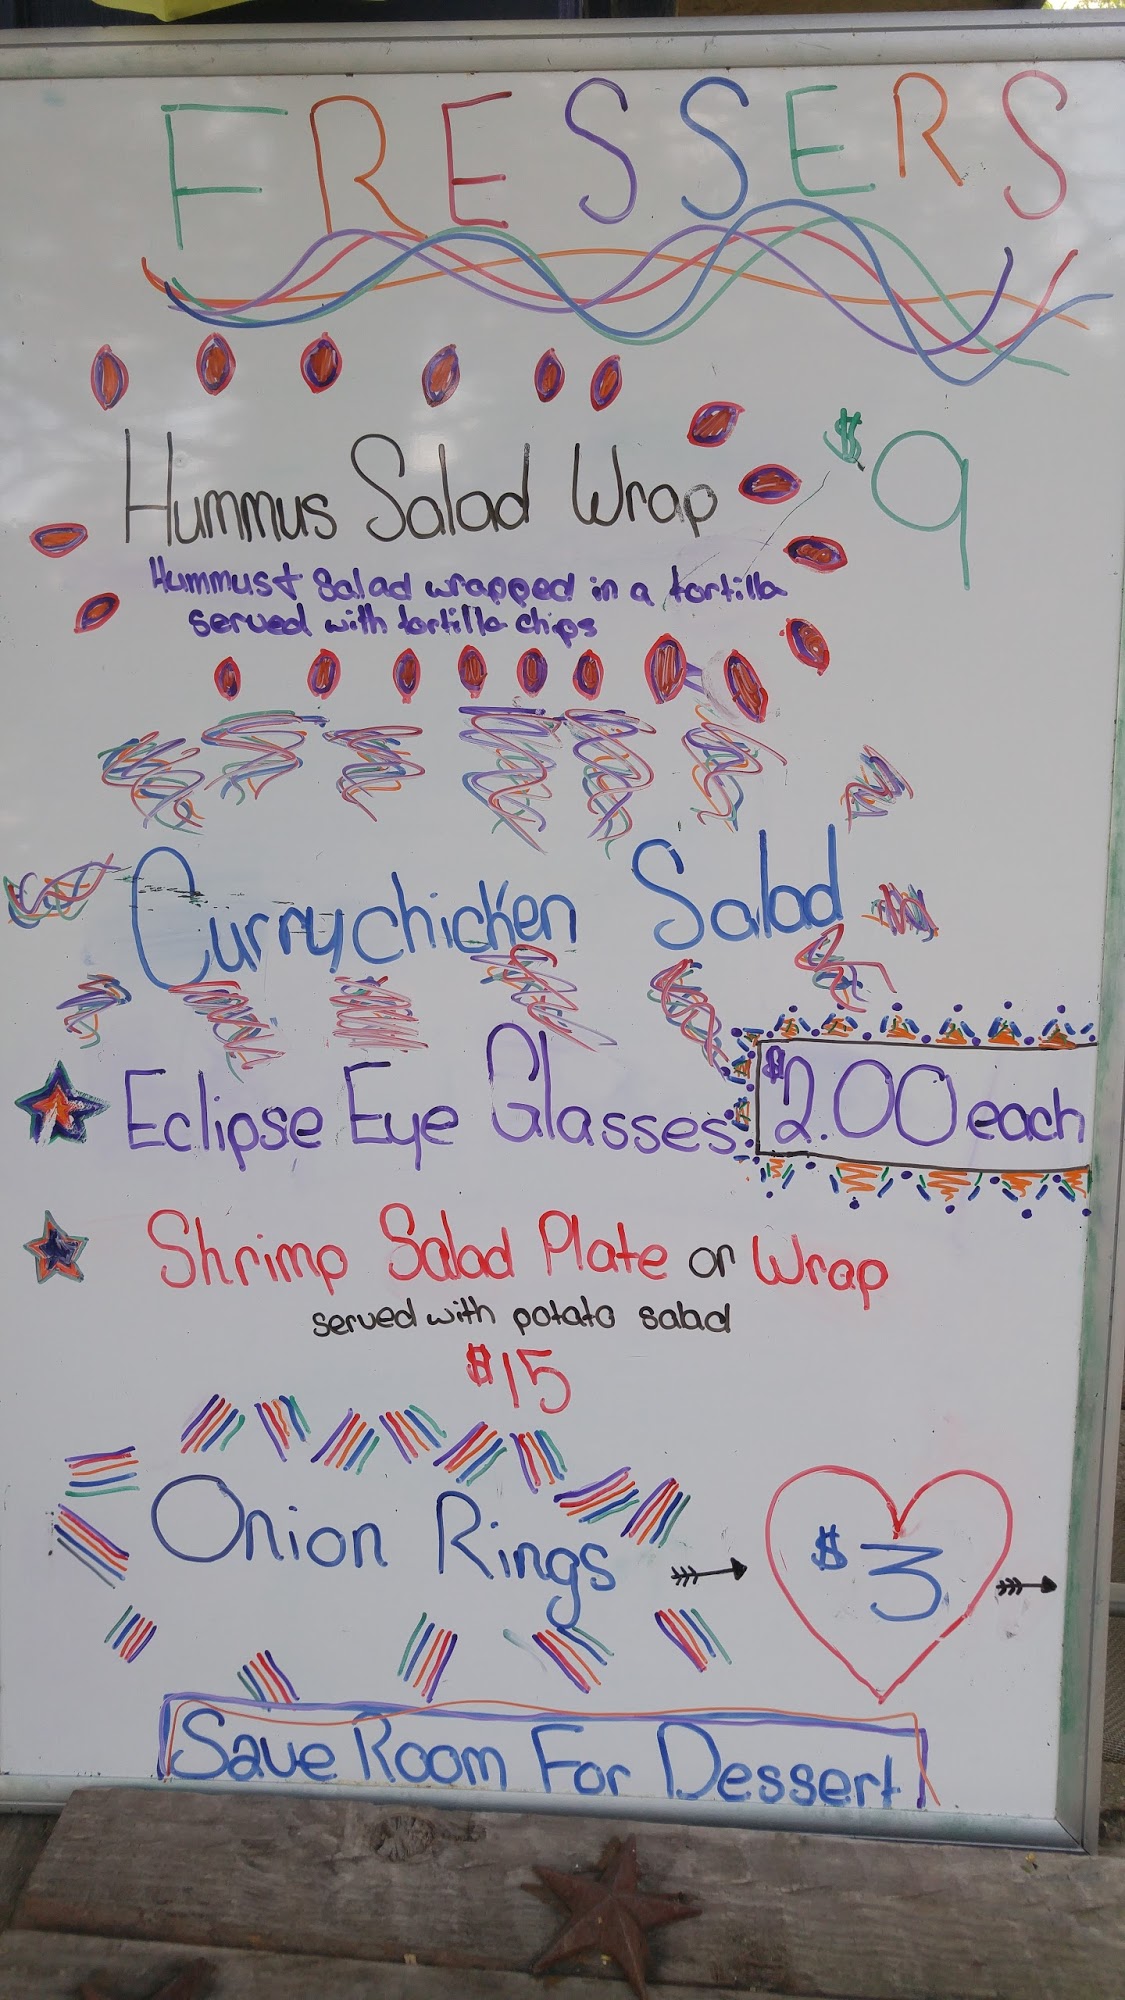 FRESSERS
Hummus Salad Wrap $9
Hummus & Salad wrapped in a tortilla
served with tortilla chips
Curry chicken Salad
Eclipse Eye Glasses $2.00 each
Shrimp Salad Plate or Wrap
served with potato salad
$15
Onion Rings $3
Save Room For Dessert